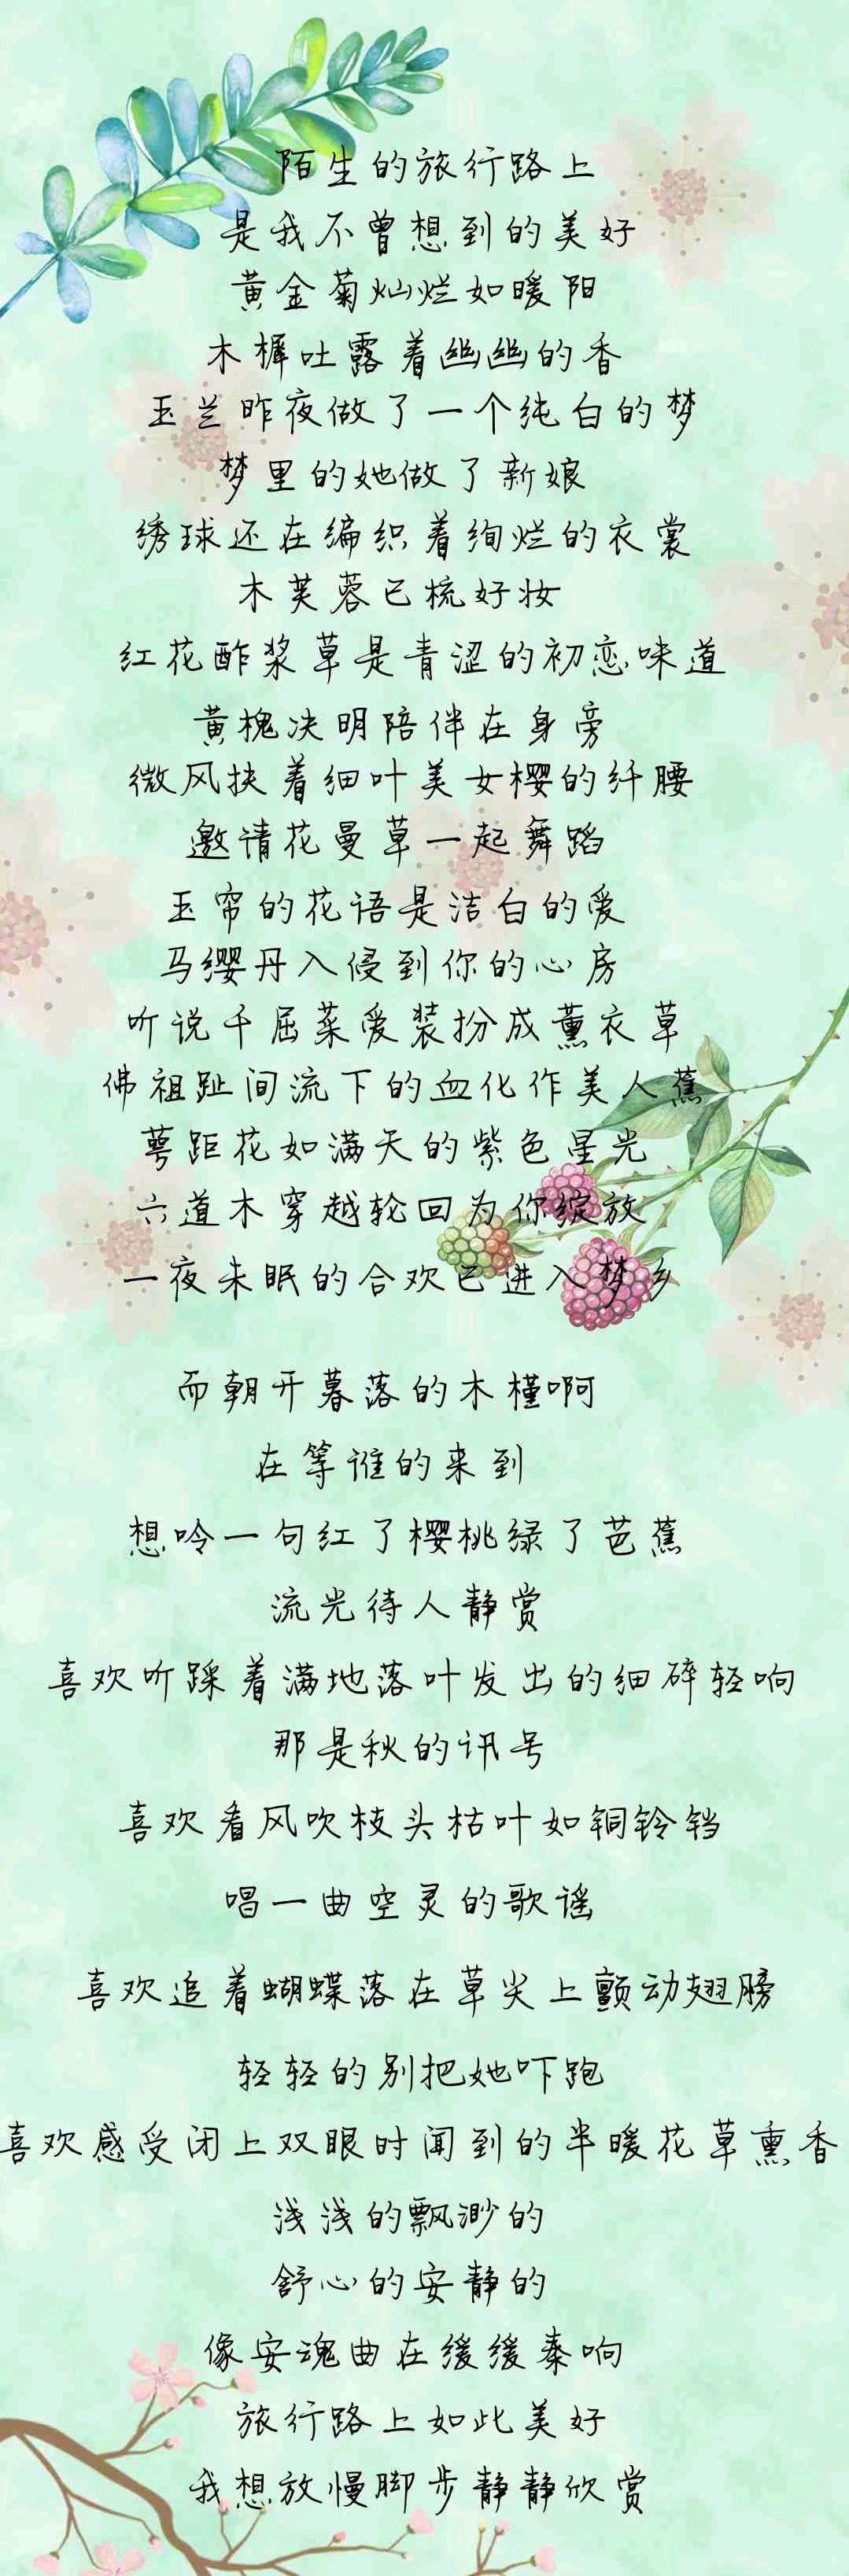 陌生的旅行路上
是我不曾想到的美好
黄金菊灿烂如暖阳
木樨吐露着幽幽的香
玉兰昨夜做了一个纯白的梦
梦里的她做了新娘
绣球还在编织着绚烂的衣裳
木芙蓉已梳好妆
红花酢浆草是青涩的初恋味道
黄槐决明陪伴在身旁
微风挟着细叶美女樱的纤腰
邀请花曼草一起舞蹈
玉帘的花语是洁白的爱
马缨丹入侵到你的心房
听说千屈菜爱装扮成薰衣草
佛祖趾间流下的血化作美人蕉
萼距花如满天的紫色星光
六道木穿越轮回为你绽放
一夜未眠的合欢已进入梦乡
而朝开暮落的木槿啊
在等谁的来到
想吟一句红了樱桃绿了芭蕉
流光待人静赏
喜欢听踩着满地落叶发出的细碎轻响
那是秋的讯号
喜欢看风吹枝头枯叶如铜铃铛
唱一曲空灵的歌谣
喜欢追着蝴蝶落在草尖上颤动翅膀
轻轻的别把她吓跑
喜欢感受闭上双眼时闻到的半暖花草熏香
浅浅的飘渺的
舒心的安静的
像安魂曲在缓缓奏响
旅行路上如此美好
我想放慢脚步静静欣赏